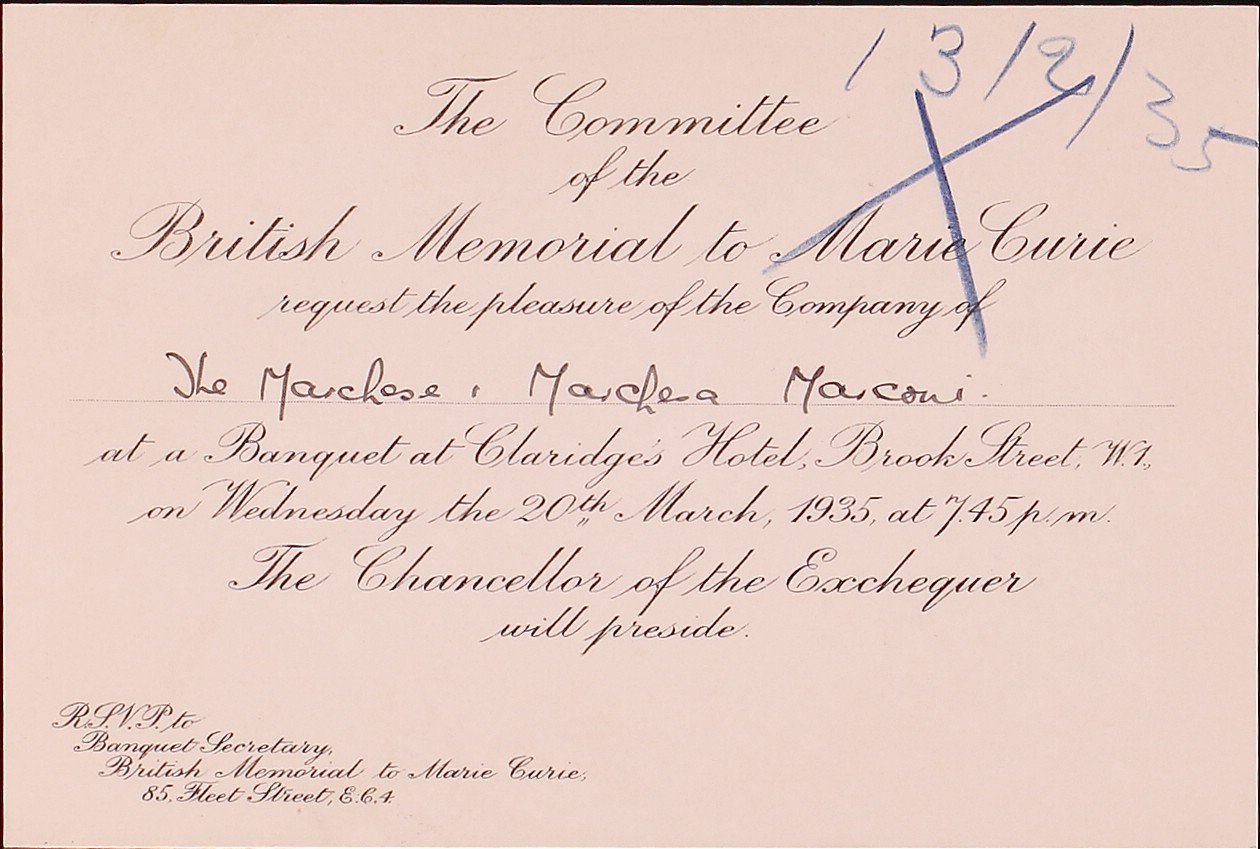 13/2/35
The Committee
of the
British Memorial to Marie Curie
request the pleasure of the Company of
The Marchese & Marchesa Marconi.
at a Banquet at Claridge's Hotel, Brook Street, W.1.,
on Wednesday the 20th March, 1935, at 7.45 p.m.
The Chancellor of the Exchequer
will preside.
R.S.V.P. to
Banquet Secretary,
British Memorial to Marie Curie,
85, Fleet Street, E.C.4.